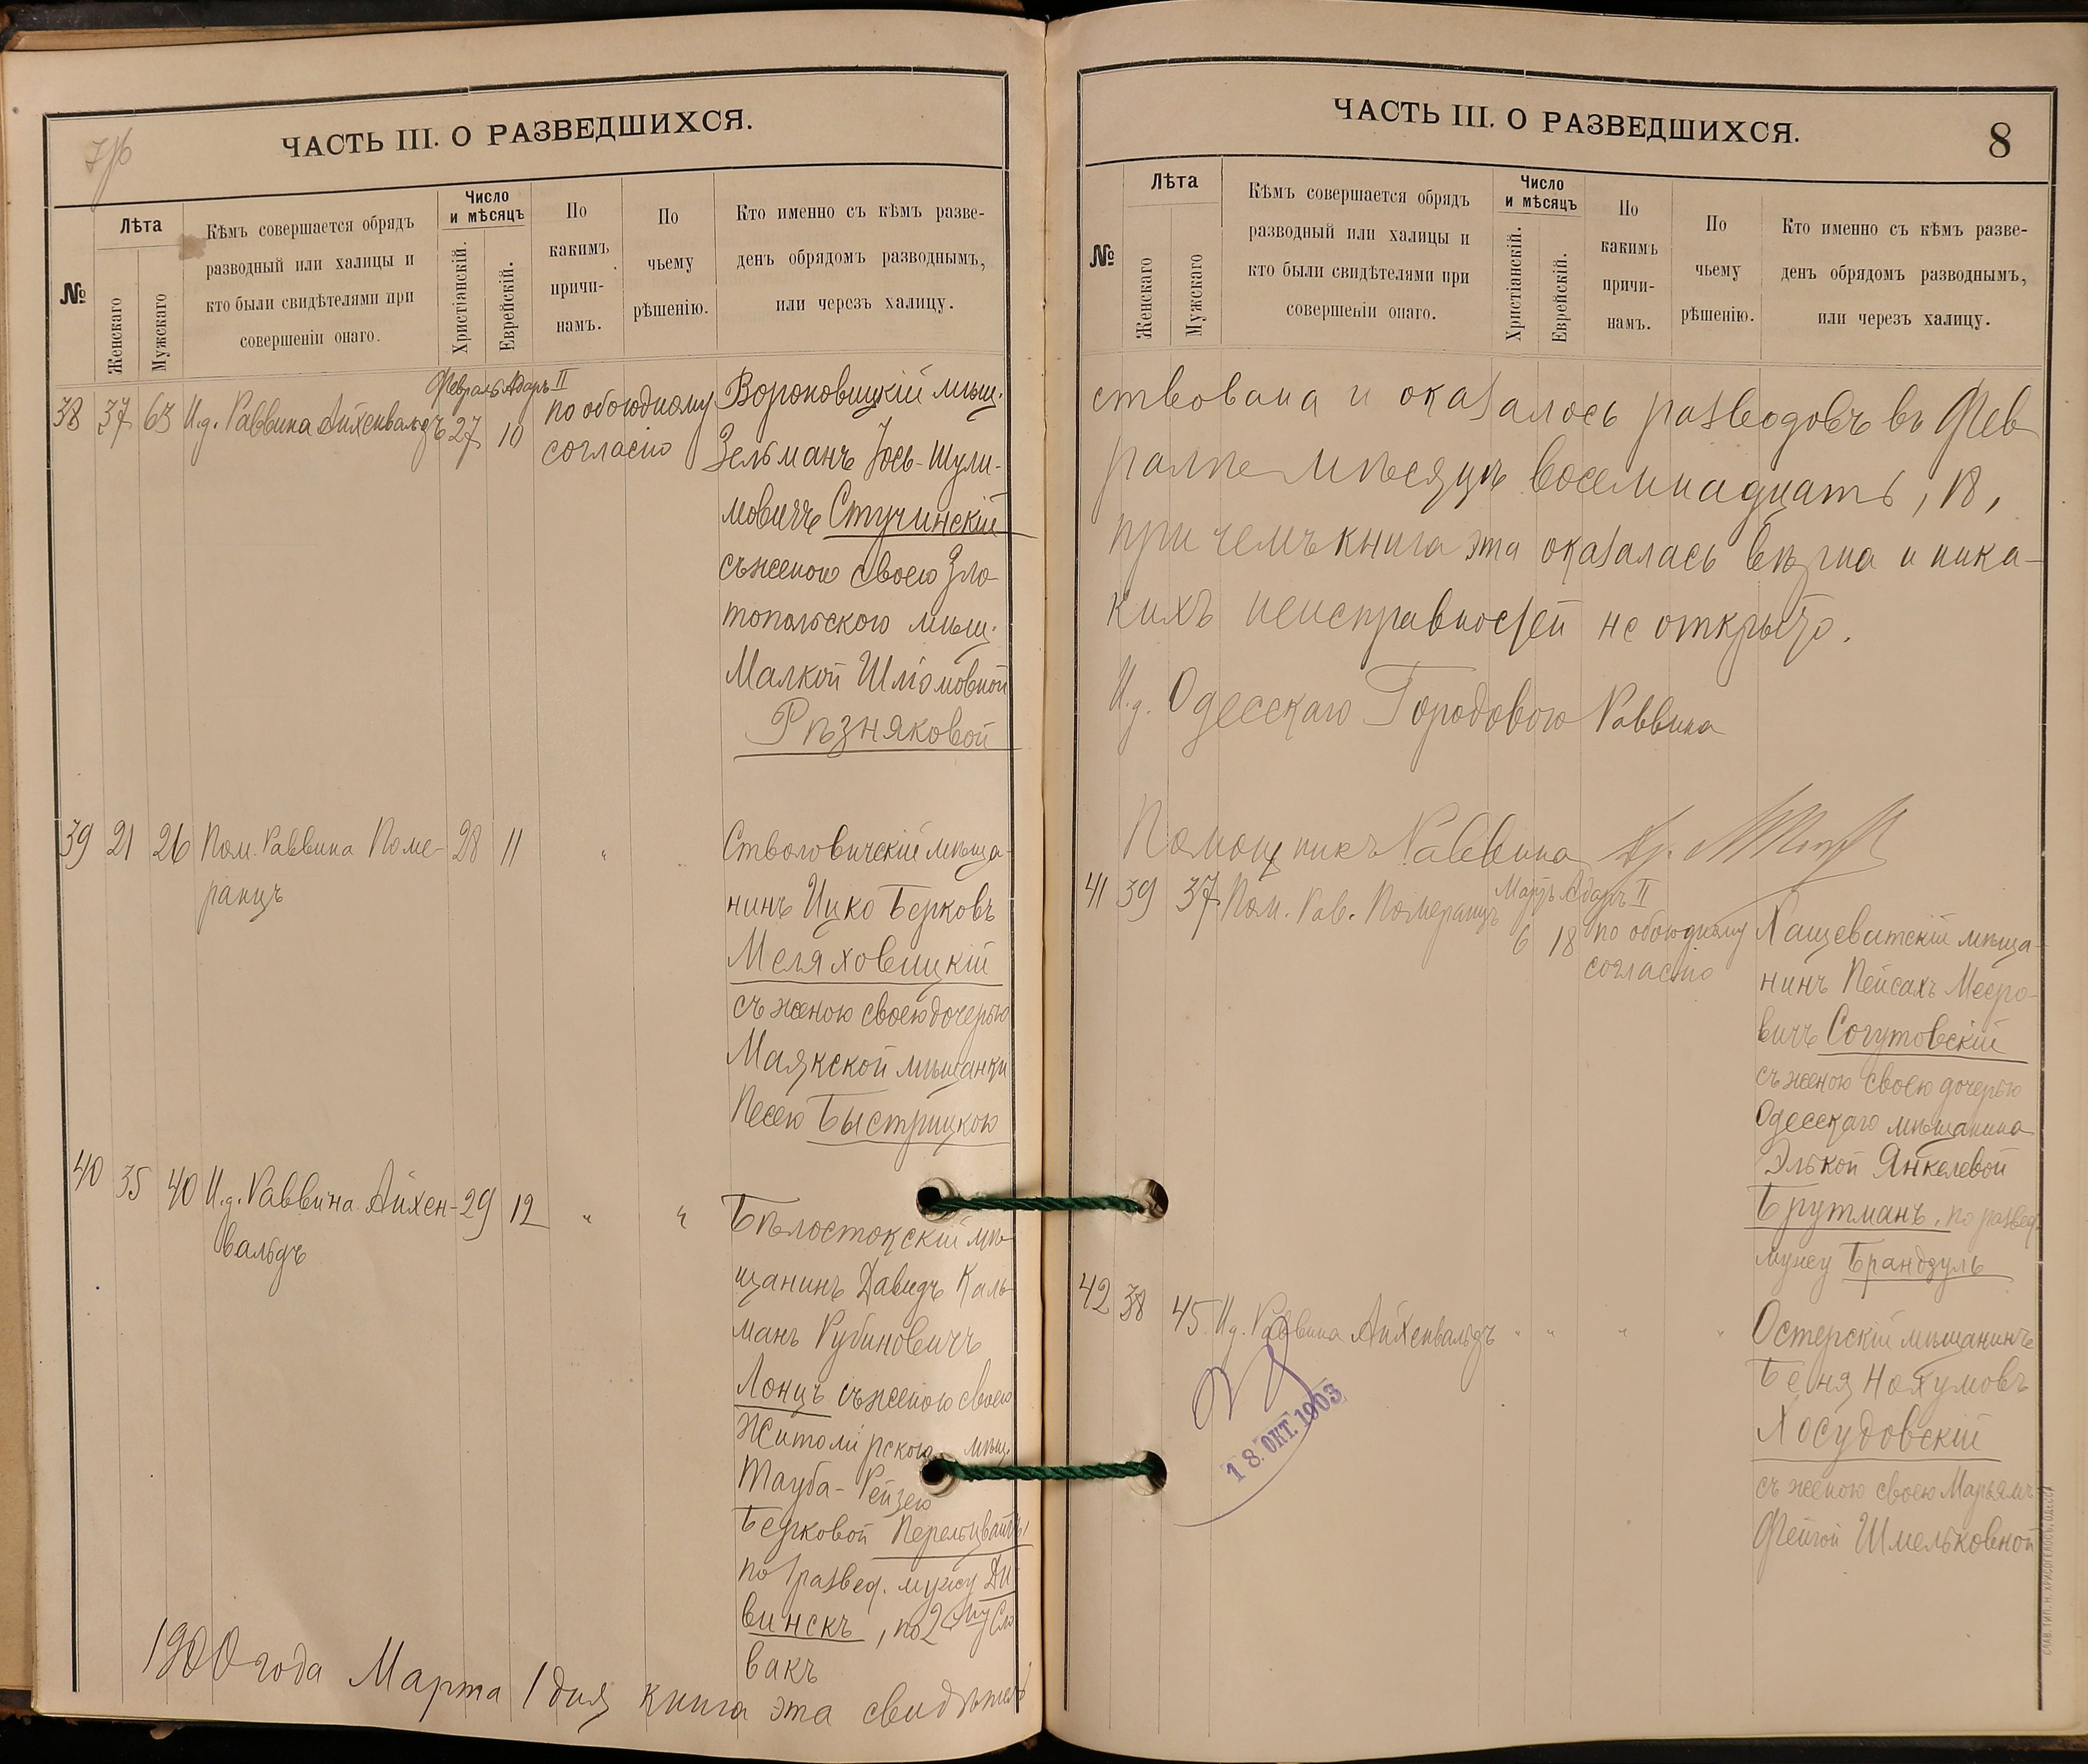 ЧАСТЬ III. О РАЗВЕДШИХСЯ.
№
Лѣта
Женскаго
Мужскаго
Кѣмъ совершается обрядъ
разводный или халицы и
кто были свидѣтелями при
совершеніи онаго.
Число
и мѣсяцъ
Христіанскій.
Еврейскій.
По
какимъ
причи-
намъ.
По
чьему
рѣшенію.
Кто именно съ кѣмъ разве-
денъ обрядомъ разводнымъ,
или черезъ халицу.
Февраль Адаръ II
38 37 63 И.д. Раввина Айхенвальдъ 27 10
по обоюдному
согласію
Вороновицкій мѣщ.
Зельманъ Іось-Шули-
мовичъ Стучинскій
съ женою своею Зло-
топольскою мѣщ.
Малкой Шліомовной
Рѣзняковой
39 21 26 Пом. Раввина Поме- 28 11 "
ранцъ
Стволовичскій мѣща-
нинъ Ицко Берковъ
Меляховицкій
съ женою своею дочерью
Маякской мѣщанки
Песею Быстрицкою
40 35 40 И.д. Раввина Айхен- 29 12 " "
вальдъ
Бѣлостокскій мѣ-
щанинъ Давидъ Каль-
манъ Рубиновичъ
Лонцъ съ женою своею
Житомірскою мѣщ.
Тауба-Рейзею
Берковой
по развед. мужу Ди
винскъ, по 2му Сло
вакъ
1900 года Марта 1 дня книга эта свидѣтель
ЧАСТЬ III. О РАЗВЕДШИХСЯ.
8
№
Лѣта
Женскаго
Мужскаго
Кѣмъ совершается обрядъ
разводный или халицы и
кто были свидѣтелями при
совершеніи онаго.
Число
и мѣсяцъ
Христіанскій.
Еврейскій.
По
какимъ
причи-
намъ.
По
чьему
рѣшенію.
Кто именно съ кѣмъ разве-
денъ обрядомъ разводнымъ,
или черезъ халицу.
ствована и оказалось разводовъ въ Фев
ралѣ мѣсяцѣ восемнадцать, 18,
при чемъ книга эта оказалась вѣрна и ника-
кихъ неисправностей не открыто.
И.д. Одесскаго Городового Раввина
Помощникъ Раввина
Мартъ Адаръ II
41 39 37 Пом. Рав. Померанцъ 6 18
по обоюдному
согласію
Хащеватскій мѣща-
нинъ Пейсахъ Мееро-
вичъ Согутовскій
съ женою своею дочерью
Одесскаго мѣщанина
Элькой Янкелевой
Брутманъ, по развед.
мужу Брандзуль
42 38 45 И.д. Раввина Айхенвальдъ " " " "
Остерскій мѣщанинъ
Беня Нохумовъ
Хосудовскій
съ женою своею Марьямъ-
Фейгой Шмельковной
18. ОКТ. 1903
СЛАВ. ТИП. Н. ХРИСОГЕЛОСЪ, ОДЕССА